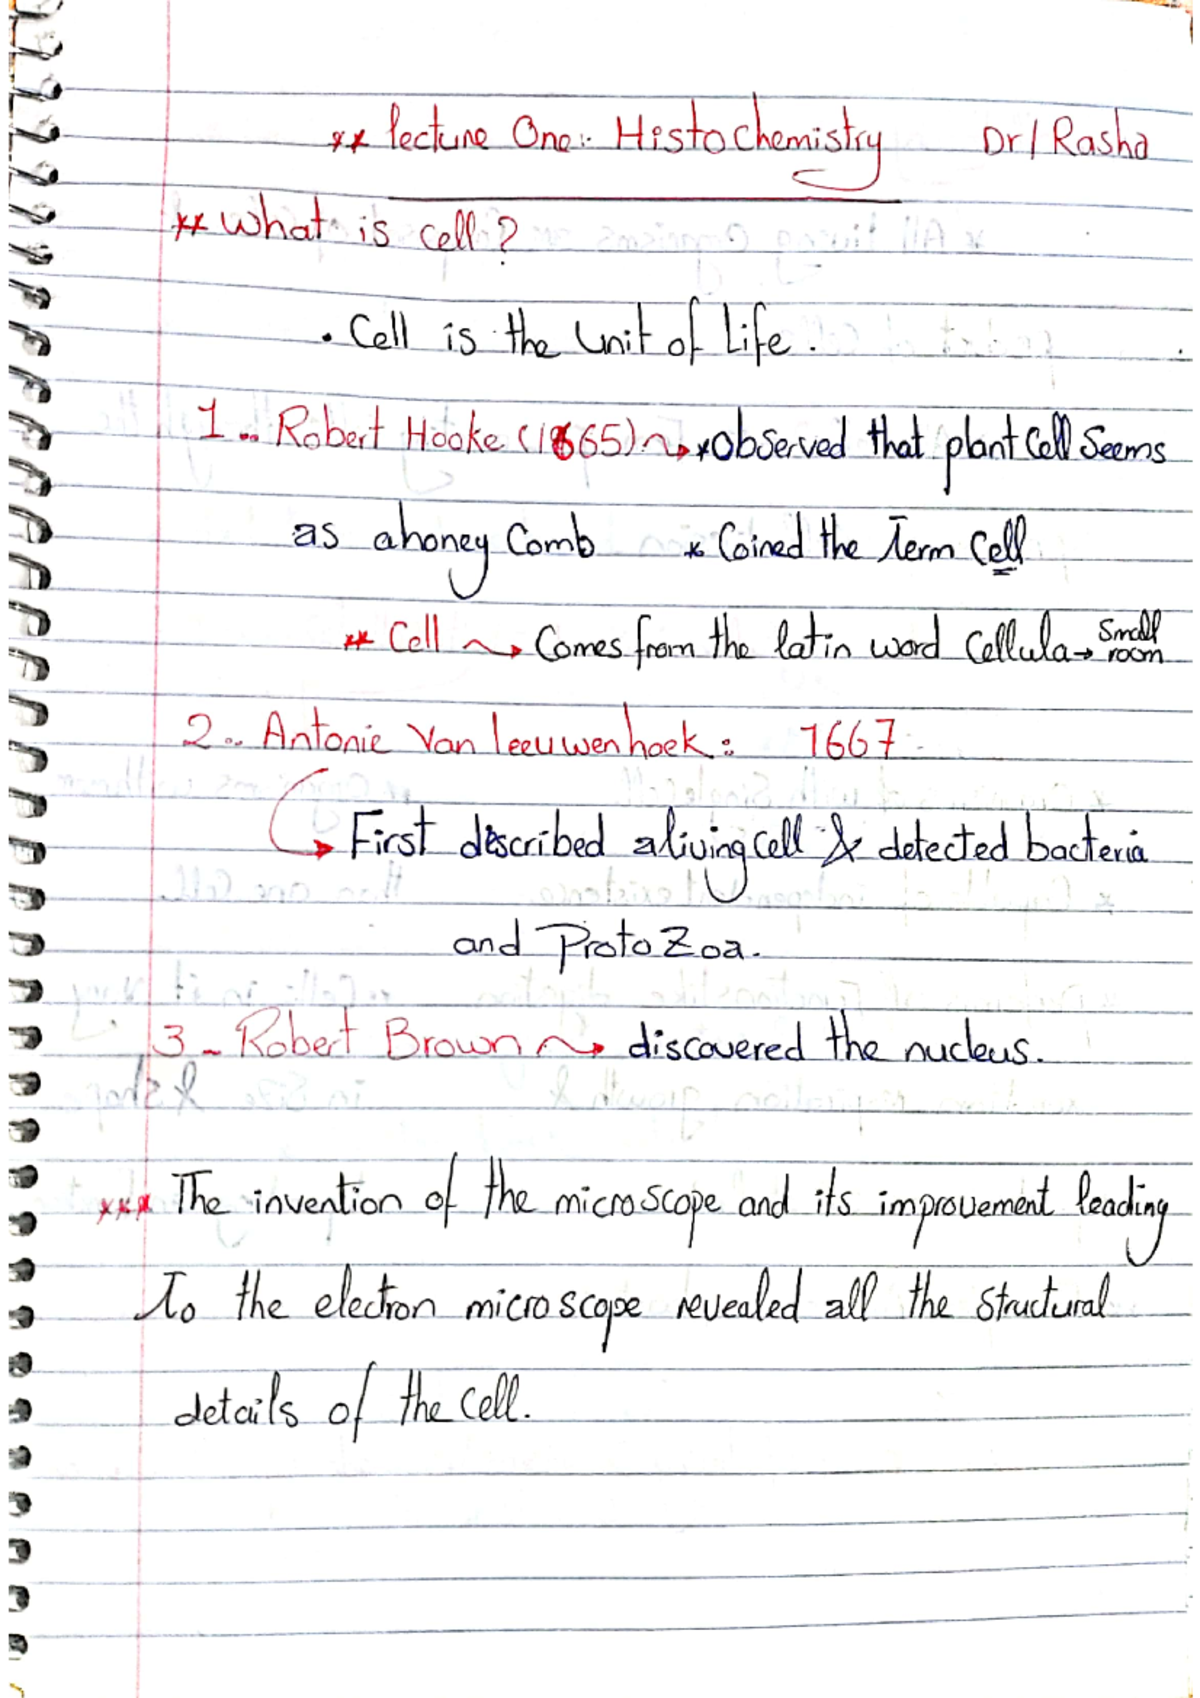 ** lecture One:- Histochemistry Dr/Rasha
** what is cell?
. Cell is the unit of Life.
1.. Robert Hooke (1665) → *observed that plant Cell Seems
as a honey Comb * Coined the Term Cell
** Cell → Comes from the latin word Cellula → Small room
2.. Antonie Van leeuwenhoek: 1667
→ First described a living cell & detected bacteria
and ProtoZoa.
3 - Robert Brown → discovered the nucleus.
*** The invention of the microscope and its improvement leading
To the electron microscope revealed all the structural
details of the cell.